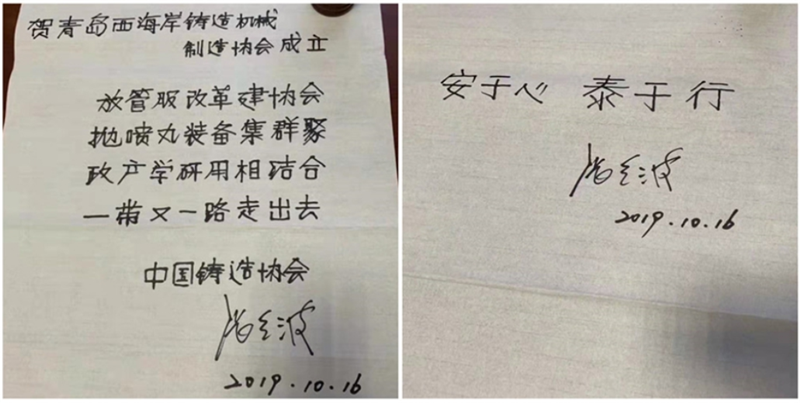 贺青岛西海岸铸造机械
制造协会成立
放管服改革建协会
抛喷丸装备集群聚
政产学研用相结合
一带又一路走出去
中国铸造协会
2019.10.16
安于心 泰于行
2019.10.16